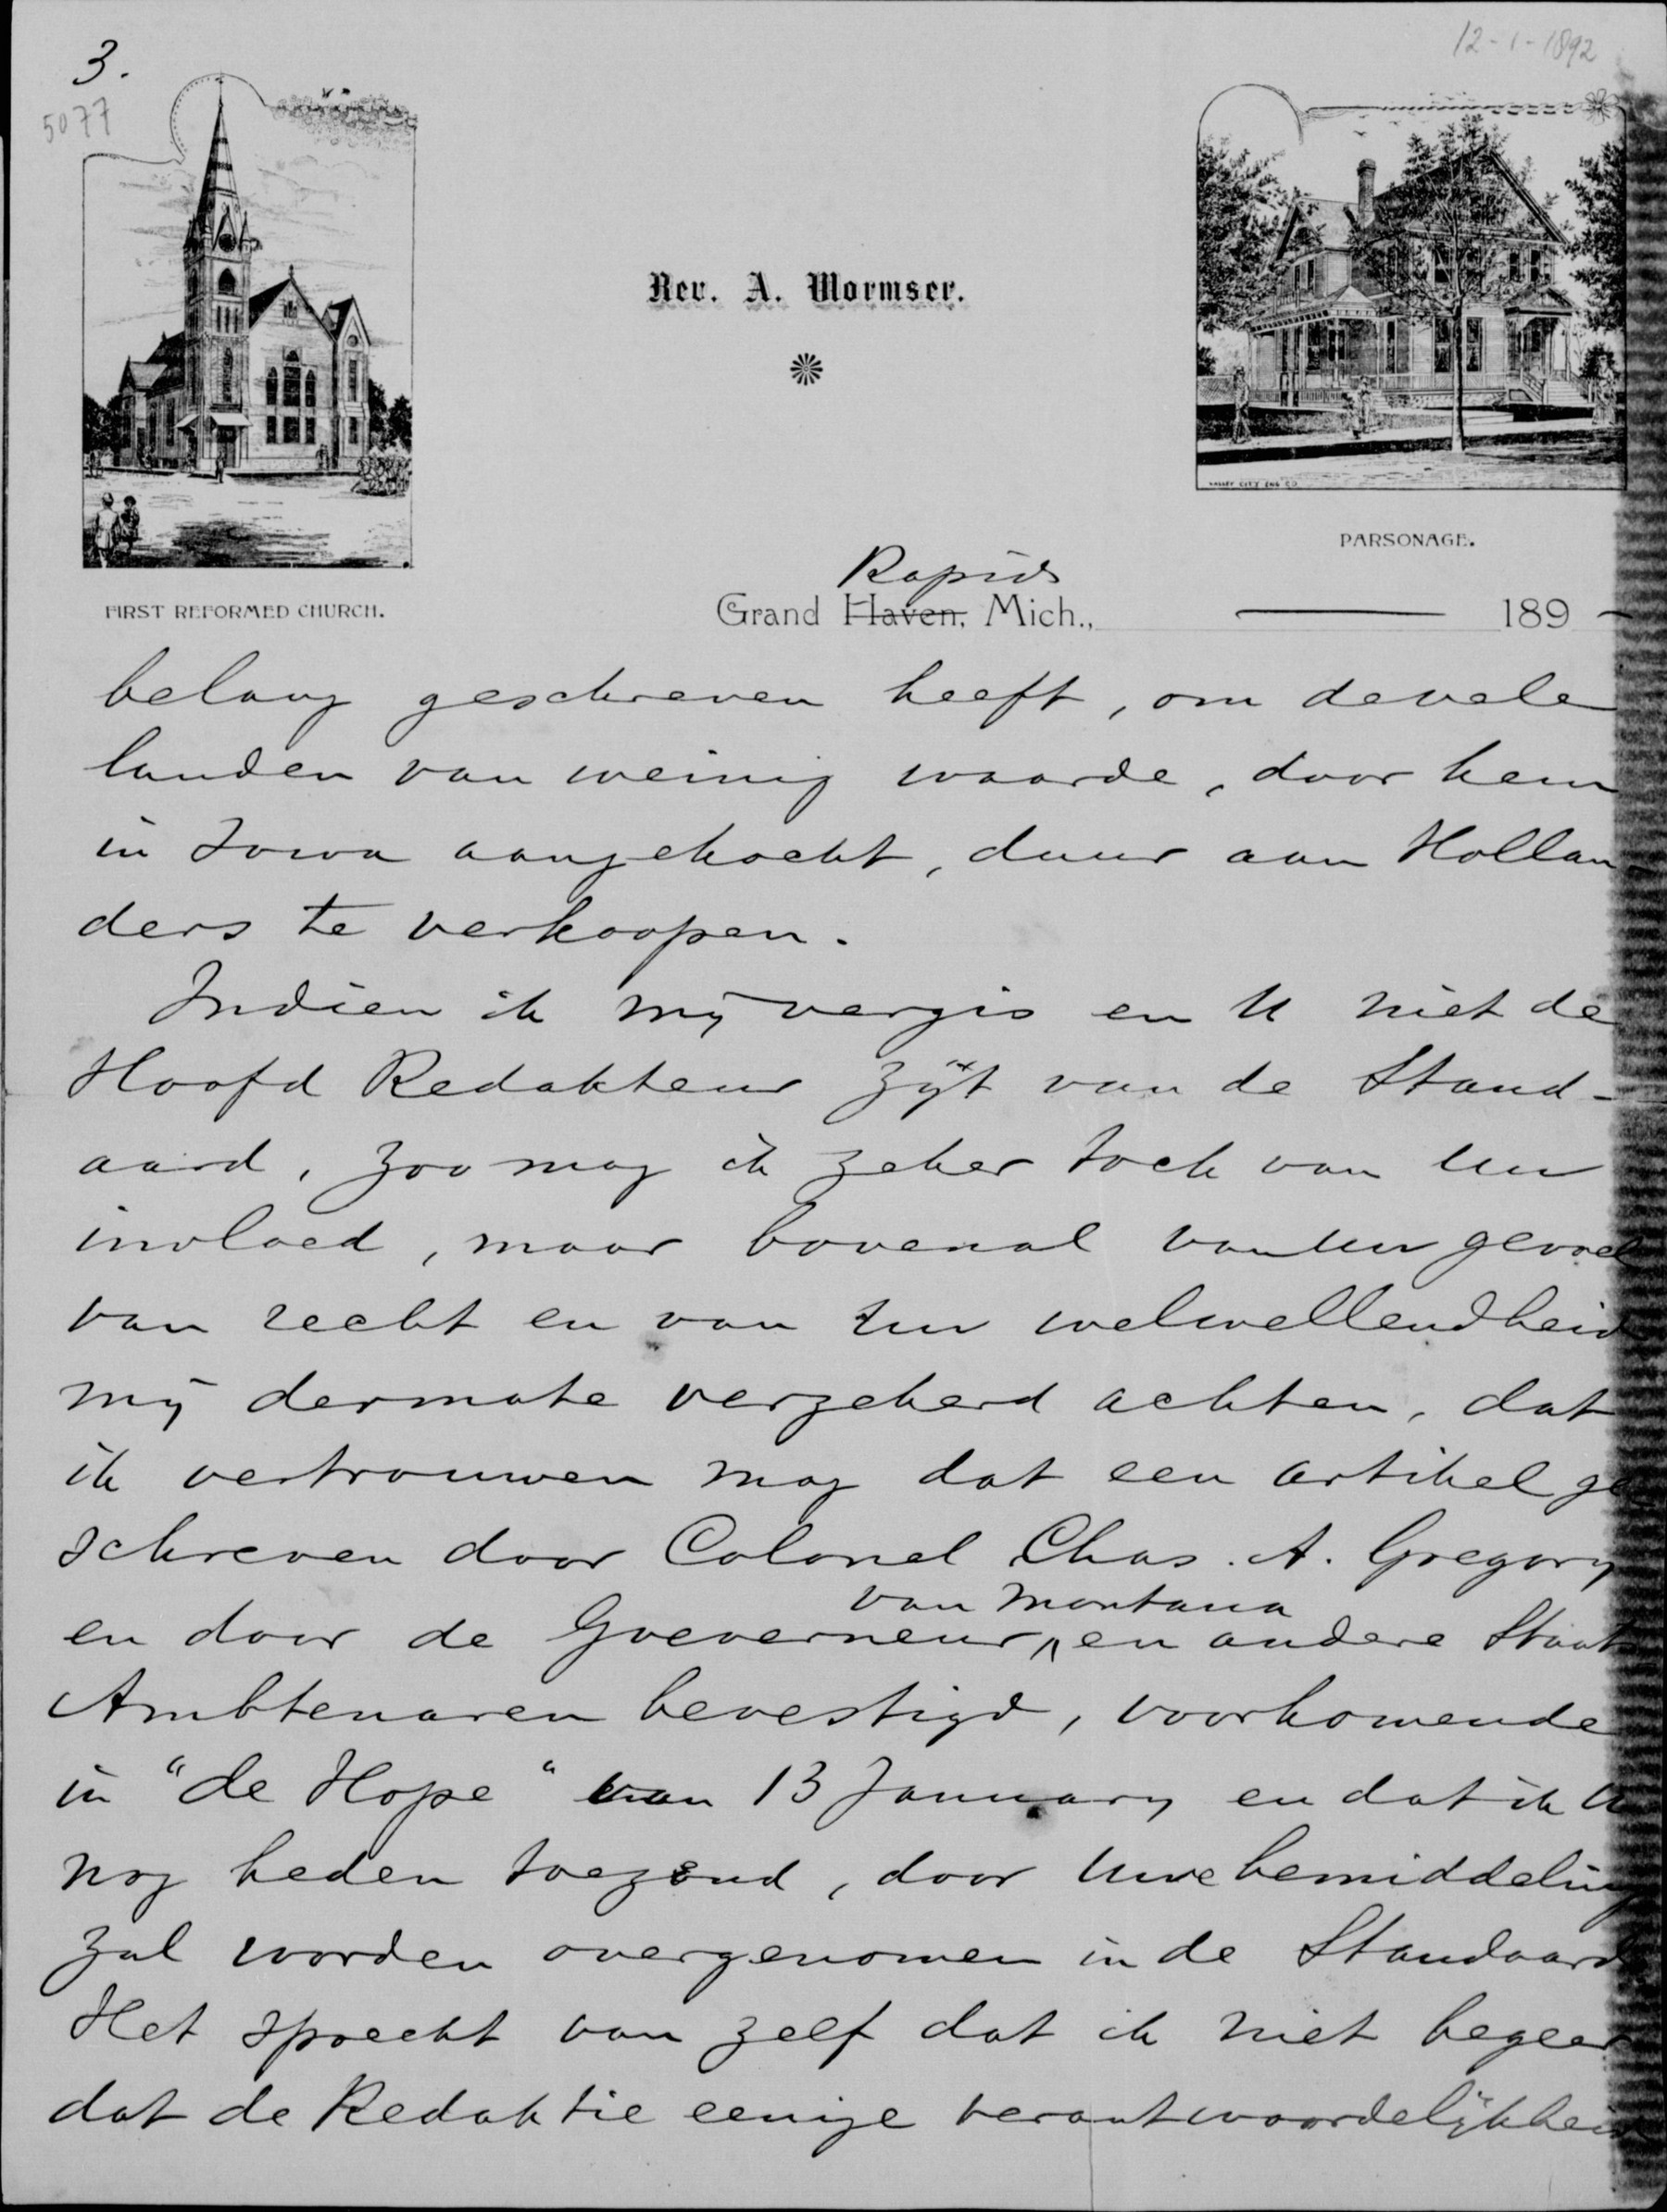 3.
5077
12-1-1892
Rev. A. Wormser.
VALLEY CITY ENG CO
PARSONAGE.
FIRST REFORMED CHURCH.
Rapids
Grand Haven, Mich., 189
belang geschreven heeft, om de vele
landen van weinig waarde, door hem
in Iowa aangekocht, duur aan Hollan
ders te verkoopen.
Indien ik mij vergis en U niet de
Hoofd Redakteur zijt van de Stand-
aard, zoo mag ik zeker toch van Uw
invloed, maar bovenal van Uw gevoel
van recht en van Uw welwellendheid
mij dermate verzekerd achten, dat
ik vertrouwen mag dat een artikel ge
schreven door Colonel Chas. A. Gregory
van Montana
en door de Goeverneur, en andere Staat
Ambtenaren bevestigd, voorkomende
in "de Hope" van 13 January en dat ik U
nog heden toezend, door Uwe bemiddeling
zal worden overgenomen in de Standaard
Het spreekt van zelf dat ik niet begeer
dat de Redaktie eenige verantwoordelijkheid